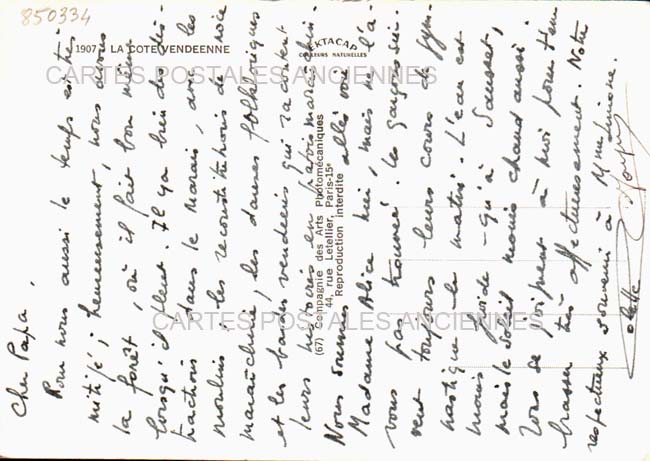 850334
1907 - LA COTE VENDEENNE
EKTACAP
COULEURS NATURELLES
CARTES POSTALES ANCIENNES
(67) Compagnie des Arts Photomécaniques
44, rue Letellier, Paris-15e
Reproduction interdite
CARTES POSTALES ANCIENNES
Cher Papa,
Pour nous aussi le temps est très
mitigé; heureusement, nous avons
la forêt, où il fait bon même
lorsqu'il pleut. Il y a bien des dis-
tractions dans le Marais, avec les
moulins; les reconstitutions de noce
maraîchine, les danses folkloriques
et les bardes vendéens qui racontent
leurs histoires en patois maraîchin.
Nous sommes allés voir
Madame Alice hier, mais ne l'a
vous pas trouvée. Les garçons sui-
vent toujours leurs cours de gym-
nastique le matin. L'eau est
moins froide qu'à Sausset,
mais le soleil moins chaud aussi!
Tous se joignent à moi pour t'em
brasser très affectueusement. Notre
respectueux souvenir à Mme Simone.
Colette